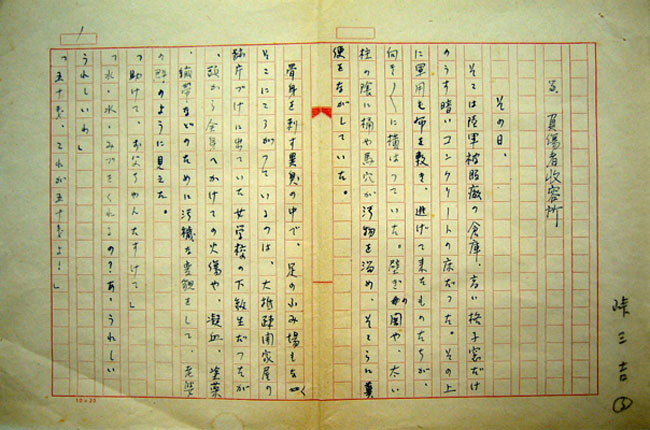 峠三吉
負傷者收容所
その日、
そこは陸軍被服廠の倉庫、高い格子窓だけ
のうす暗いコンクリートの床だつた。その上
に軍用毛布を敷き、逃げて来たものたちが、
向き〱に横はつていた。壁ぎの隅や、太い
柱の陰に桶や馬穴が汚物を溜め、そこらに糞
便をながしていた。
骨身を刺す異臭の中で、足のふみ場もなく
そこにころがつているのは、大抵疎開家屋の
跡片づけに出ていた女学校の下級生だつたが
、頭から全身へかけての火傷や、凝血、塗薬
、繃帯などのために汚穢な変貌をして、老婆
の群のように見えた。
「助けて、お父ちやんたすけて」
「水・水・みづをくれるの?あ、うれしい
うれしいわ」
「五十銭、これが五十銭よ!」
1
10×20